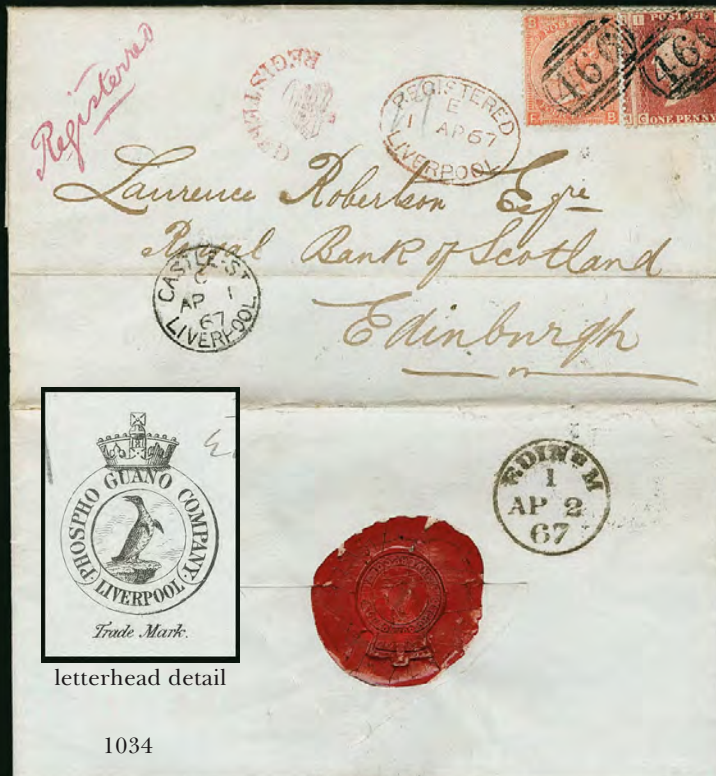 Registered
REGISTERED
REGISTERED
E
1 AP 67
LIVERPOOL
466
466
POSTAGE
ONE PENNY
F B
Laurence Robertson Esqre
Royal Bank of Scotland
Edinburgh
CASTLE·ST
C
AP 1
67
LIVERPOOL
PHOSPHO GUANO COMPANY.
LIVERPOOL
Trade Mark.
letterhead detail
EDINR M
1
AP 2
67
1034